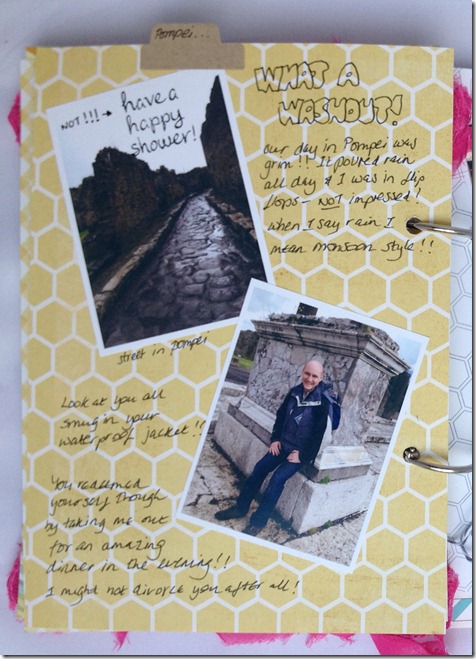 Pompei...
NOT!!! → have a
happy
shower!
WHAT A
WASHOUT!
our day in Pompei was
grim!! It poured rain
all day & I was in flip
flops - NOT impressed!
when I say rain I
mean monsoon style!!
street in pompei
Look at you all
smug in your
waterproof jacket!!
You redeemed
yourself though
by taking me out
for an amazing
dinner in the evening!!
I might not divorce you after all!